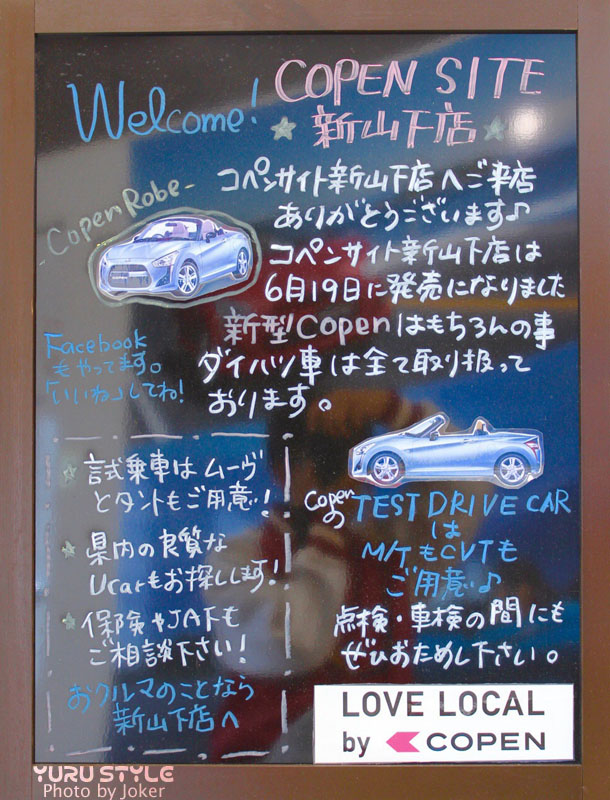 Welcome!
COPEN SITE
新山下店
コペンサイト新山下店へご来店
ありがとうございます♪
-Copen Robe-
コペンサイト新山下店は
6月19日に発売になりました
新型Copenはもちろんの事
ダイハツ車は全て取り扱って
おります。
Facebook
もやってます。
「いいね」してね!
試乗車はムーヴ
とタントもご用意!
県内の良質な
Ucarもお探しします!
保険やJAFも
ご相談下さい!
おクルマのことなら
新山下店へ
Copenの
TEST DRIVE CAR
は
M/TもCVTも
ご用意♪
点検・車検の間にも
ぜひおためし下さい。
LOVE LOCAL
by COPEN
YURU STYLE
Photo by Joker